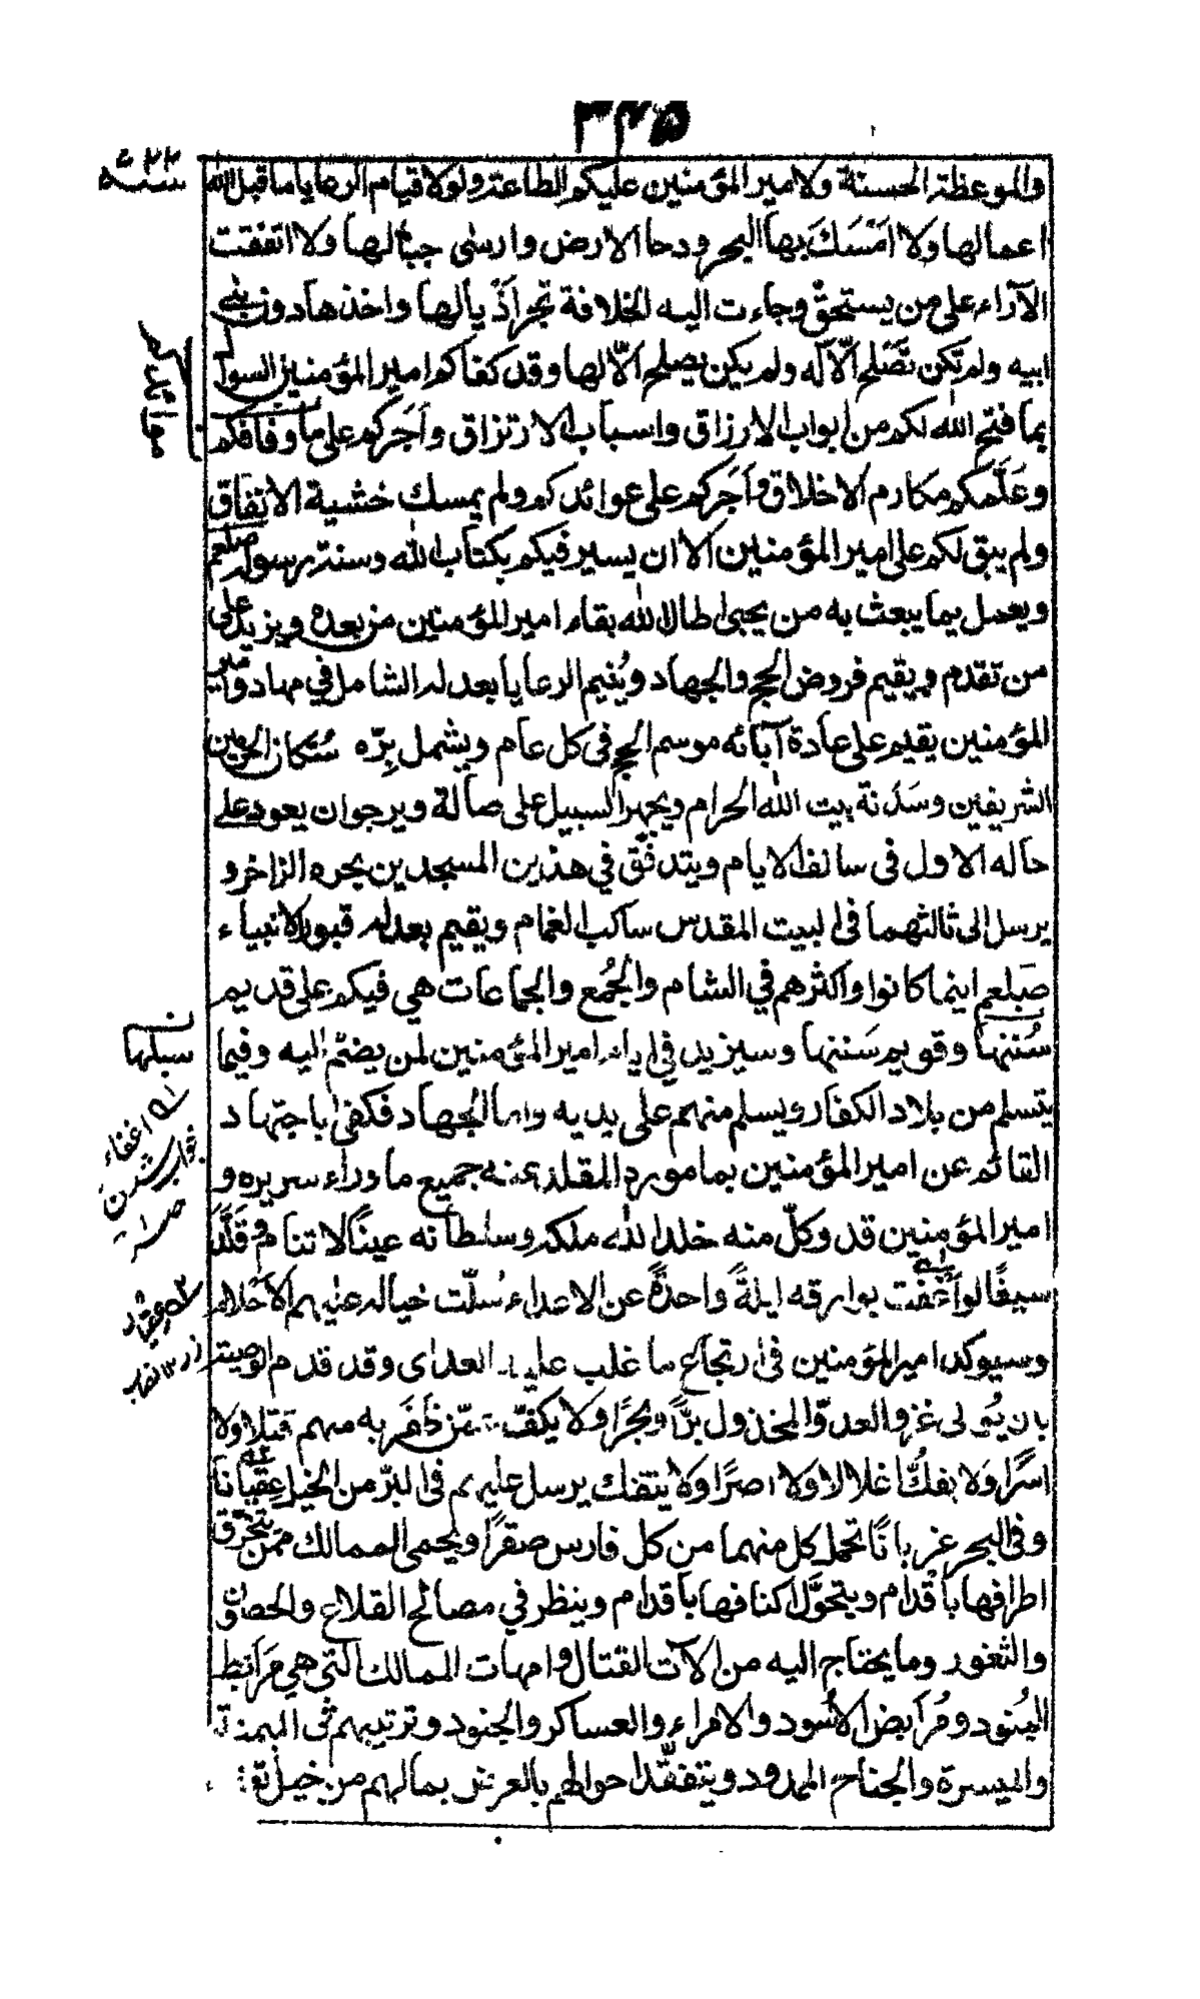 ٣٤٥
سنة ٢٢
والموعظة الحسنة ولامير المؤمنين عليكم الطاعة ولولا قيام الرعايا ما قبل الله
اعمالها ولا امْسَكَ بها البحر ودحا الارض وارسٰى جبالها ولا اتفقت
الآراء على من يستحقّ وجاءت اليه الخلافة تجر اذيالها واخذها دون بنى
ابيه ولم تكن تَصْلح الّا له ولم يكن يصلح الّا لها وقد كفاكم امير المؤمنين السوال
بما فتح الله لكم من ابواب الارزاق واسباب الارتزاق واَجركم على ما وفاقكم
وعَلَّمكم مكارم الاخلاق واَجَركم على عوائدكم ولم يمسك خشية الانفاق
ولم يبق لكم على امير المؤمنين الا ان يسير فيكم بكتاب الله وسنة رسوله صلعم
ويعمل بما يبعث به من يحيى اطال الله بقاء امير المؤمنين من بعده ويزيد على
من تقدم ويقيم فروض الحج والجهاد ويُنيم الرعايا بعدله الشامل في مهاد وامير
المؤمنين يقيم على عادة آبائه موسم الحج فى كل عام ويشمل بِرّه سُكان الحرمين
الشريفين وسَدَنة بيت الله الحرام ويجهز السبيل على ضالة ويرجو ان يعود على
حاله الاول فى سالف الايام ويتدفّق في هذين المسجدين بحره الزاخر و
يرسل الى ثالثهما فى البيت المقدس ساكب الغمام ويقيم بعدله قبور الانبياء
صلعم اينما كانوا واكثرهم في الشام والجُمع والجماعات هي فيكم على قديم
سُننها وقويم سَننها وسيزيد فى ايام امير المؤمنين لمن يضمّ اليه وفيما
ن سبلها
يتسلم من بلاد الكفار ويسلم منهم على يديه واما الجهاد فكفى باجتهاد
القائم عن امير المؤمنين بماموره المقلد عنه جميع ما وراء سريره و
امير المؤمنين قد وكّل منه خلد الله ملكه وسلطانه عينًا لا تنام وقَلَّدَ
سيفًا لو اَغْفت بوارقه ليلةً واحدةً عن الاعداء سُلّت خياله عليهم الاَحلام
وسيوكد امير المؤمنين فى ارتجاع ما غلب عليه العداى وقد قدم الوصية
بان يُولى غزو العدوّ المخذول برًّا وبحرًا ولا يكفّ عمّن ظفر به منهم قتلا ولا
اسرًا ولا يفكّ اغلالا ولا اصرًا ولا ينفك يرسل عليهم فى البرّ من الخيل عقبانا
وفى البحر غربانًا تحمل كل منهما من كل فارس صقرًا ويحمى الممالك ممن يتخرّق
اطرافها باقدام ويتحوّل اكنافها باقدام وينظر في مصالح القلاع والحصون
والثغور وما يحتاج اليه من آلات القتال وامهات الممالك التى هي مَرابط
البُنود ومَرابض الاُسود والامراء والعساكر والجنود وترتيبهم فى الميمنة
والميسرة والجناح الممدود ويتفقّد احوالهم بالعرض بمالهم من خيل